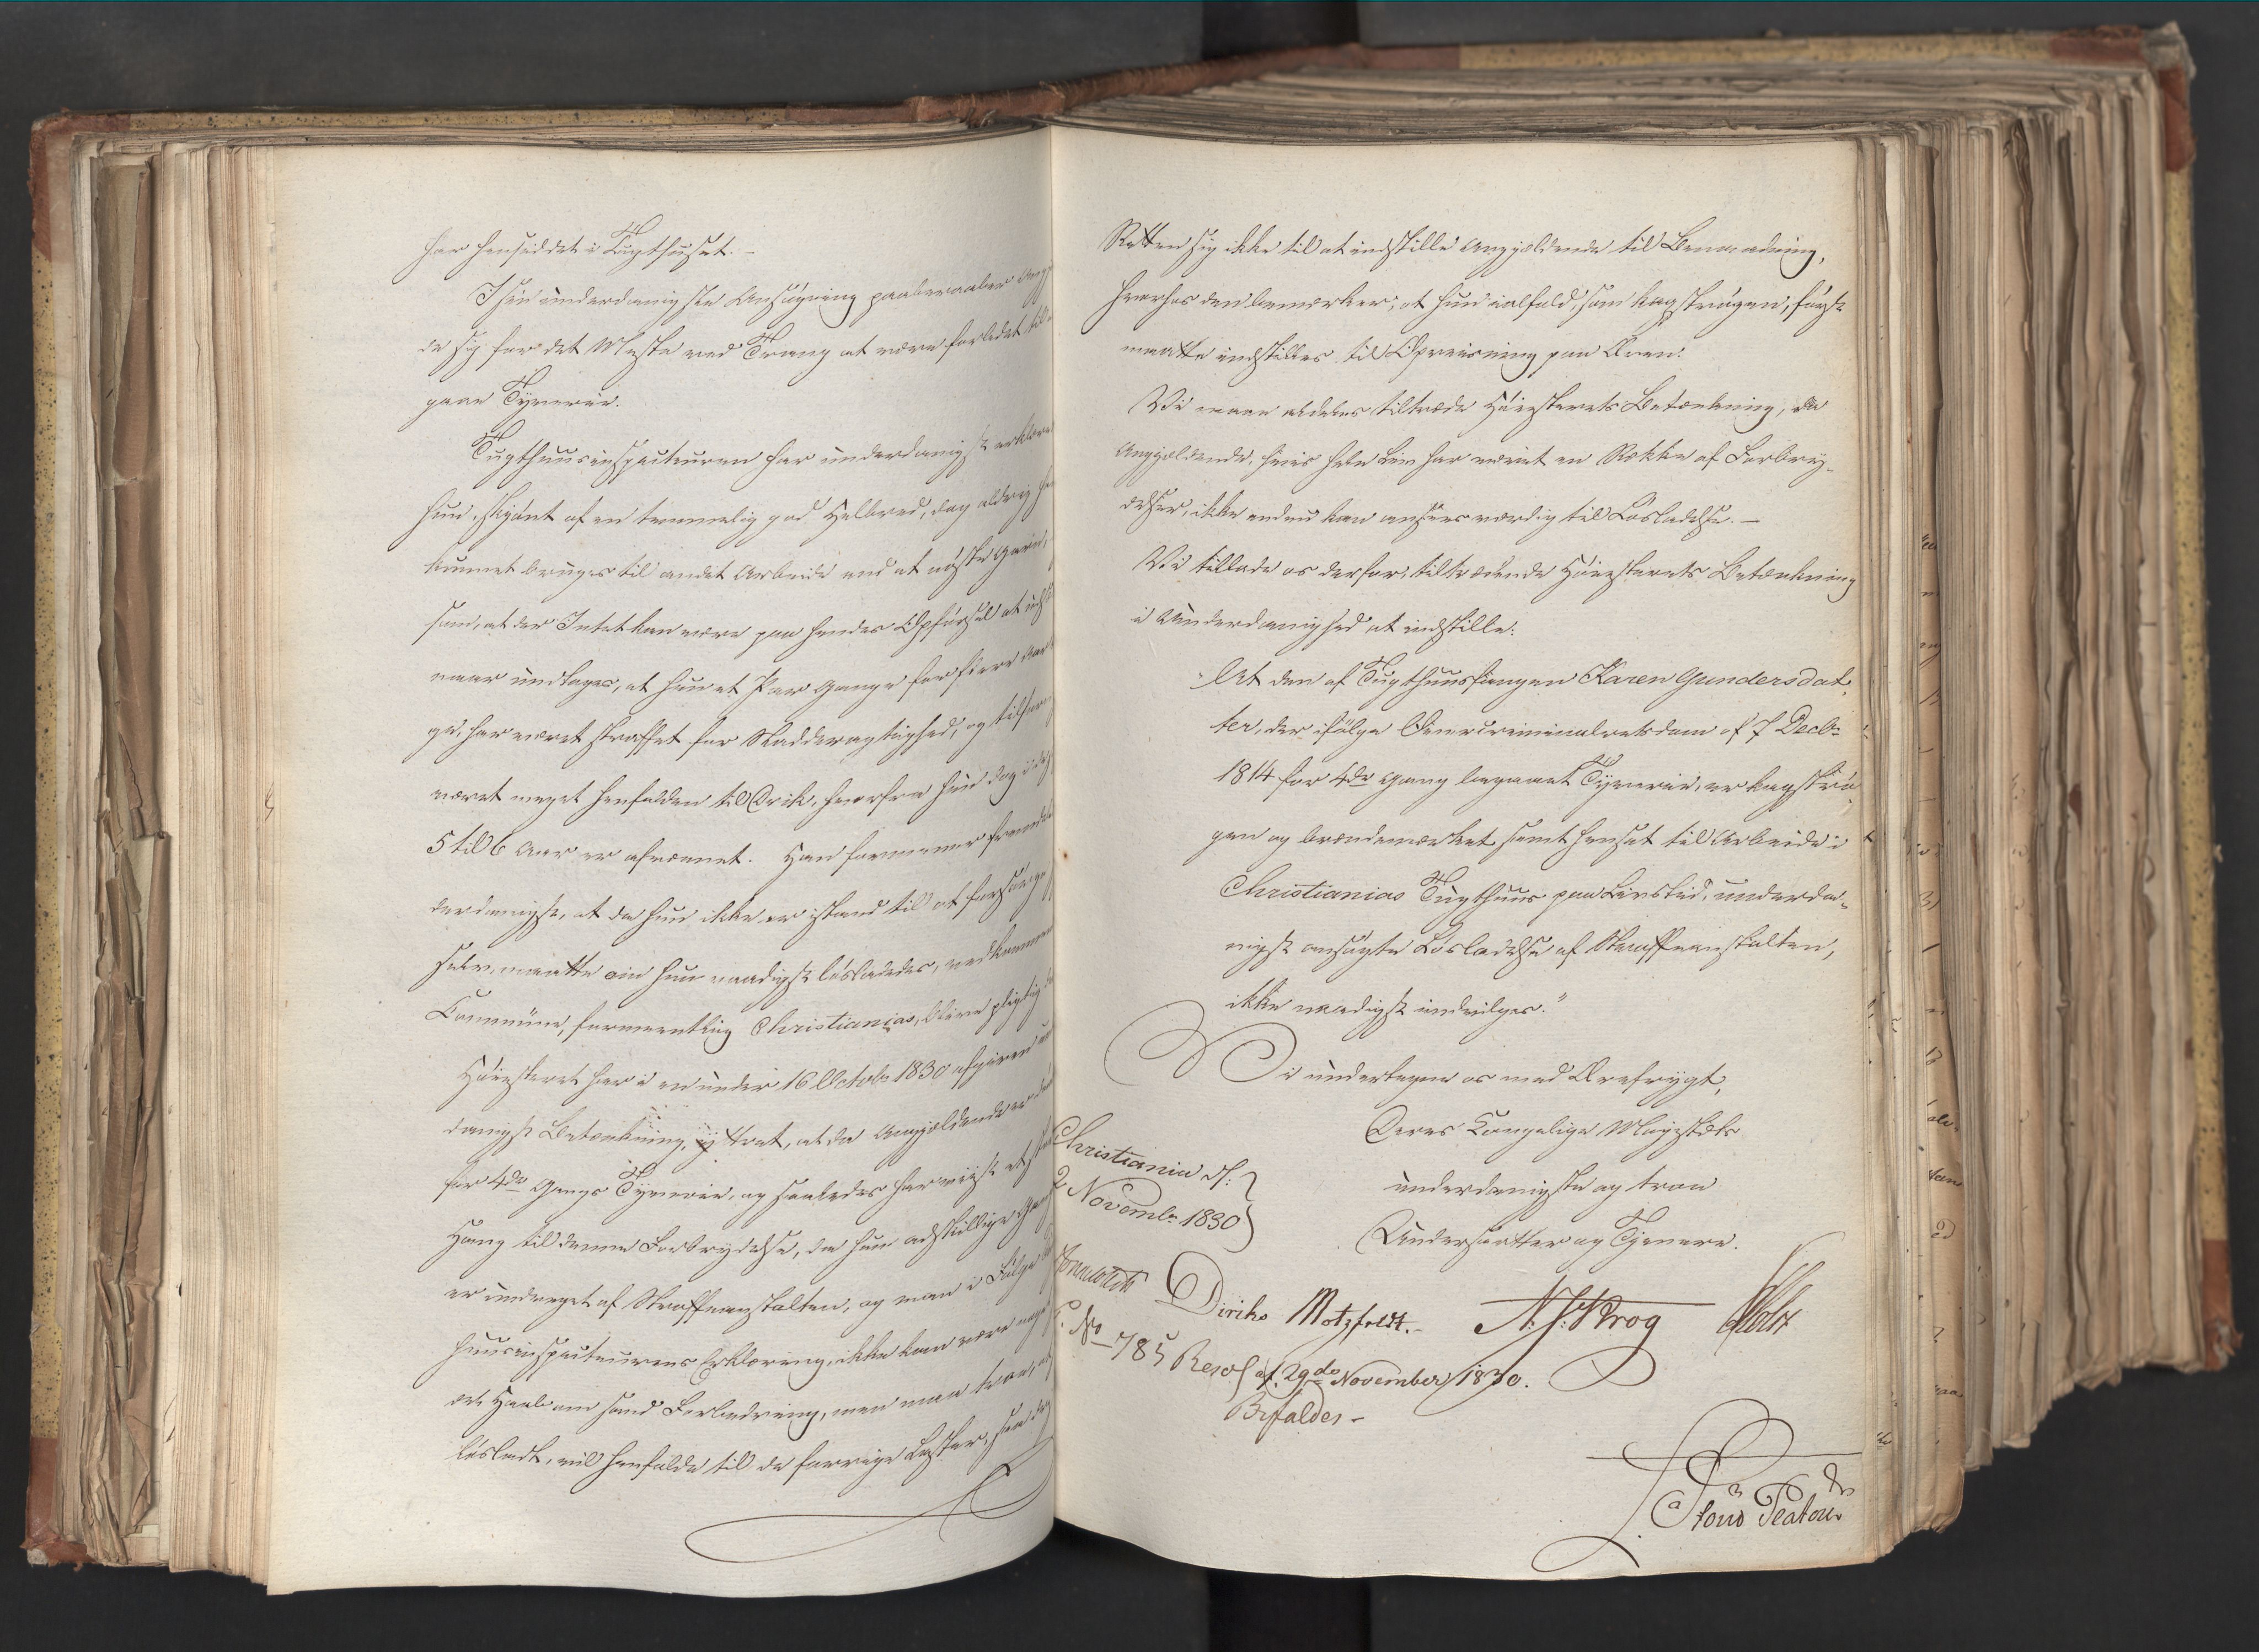 har hensiddet i Tugthuset. –
I sin underdanigste Ansögning paaberaaber Ang
de sig for det Meste ved Trang at være forledet til
gaae Tyverie.
Tugthuusinspecteuren har underdanigst erklære
hun, skjönt af en temmelig god Helbred, dog aldrig ha
kunnet bruges til andet Arbeide end at nöste Garn,
som, at der Intet kan være paa hendes Opförsel at uds
naar undtages, at hun et Par Gange for fleere Aar
ge, har været straffet for Sladderagtighed, og tilforn
været meget henfalden til Drik, hvorfra hun dog i de
5 til 6 Aar er afvænnet. Han formener fremde
derdanigst, at da hun ikke er istand til at forsörge
selv, maatte om hun naadigst löslades, vedkommen
Commüne, formeentlig Christianias, blive pligtig
Höiesteret har i en under 16 Octobr 1830 afgiven un
danigst Betænkning, yttret, at da Angjældende er
for 4de Gangs Tyverie, og saaledes har viist et
Hang til denne Forbrydelse, da hun adskillige Gan
er undveget af Straffeanstalten, og man i Fölge
huusinspecteurens Erklæring, ikke kan nære noge
det Haab om sand Forbedring, men maa troe, at
lösladt, vil henfalde til de forrige Laster, saa
Retten sig ikke til at indstille Angjældende til Benaadning,
hvorhos den bemærker; at hun ialfald, som kagströgen, först
maatte indstilles til Opreisning paa Æren.
Vi maae aldeles tiltræde Höiesterets Betænkning, da
Angjældende, hvis hele Liv har været en Række af Forbry-
delser, ikke endnu kan ansees værdig til Lösladelse. –
Vi tillade os derfor, tiltrædende Höiesterets Betænkning
i Underdanighed at indstille:
"At den af Tugthuusfangen Karen Gundersdat-
ter, der ifölge Overcriminalretsdom af 7 Decbr
1814 for 4de Gang begaaet Tyverie, er kagströ-
gen og brændemærket samt hensat til Arbeide i
Christianias Tugthuus paa Livstid, underda-
nigst ansögte Lösladelse af Straffeanstalten,
ikke naadigst indvilges."
Vi undertegne os med Ærefrygt,
Deres Kongelige Majestæts
underdanigste og troe
Undersaatter og Tjenere.
Christiania d:
2 Novembr 1830
Diriks Motzfeldt. N. J. Krog Holst
No 785 Resol af 29de November 1830.
Bifaldes –